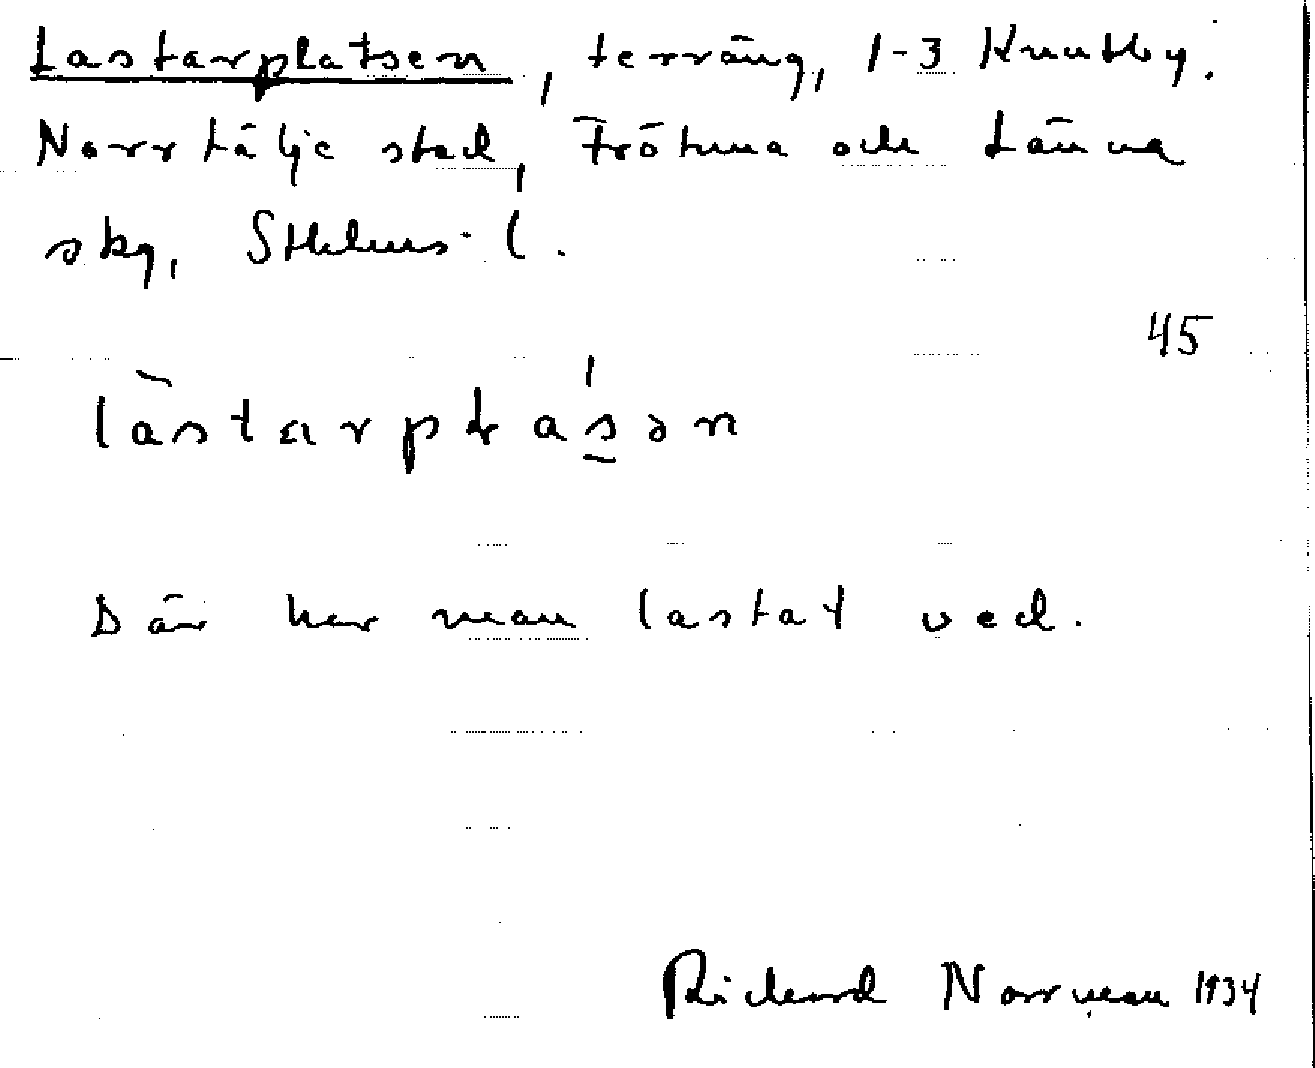 Lastarplatsen, terräng, 1-3 Knutby.
Norrtälje stad, Frötuna och Länna
skg, Sthlms l.
45
là̀starplásən
Där har man lastat ved.
Richard Norrman 1934